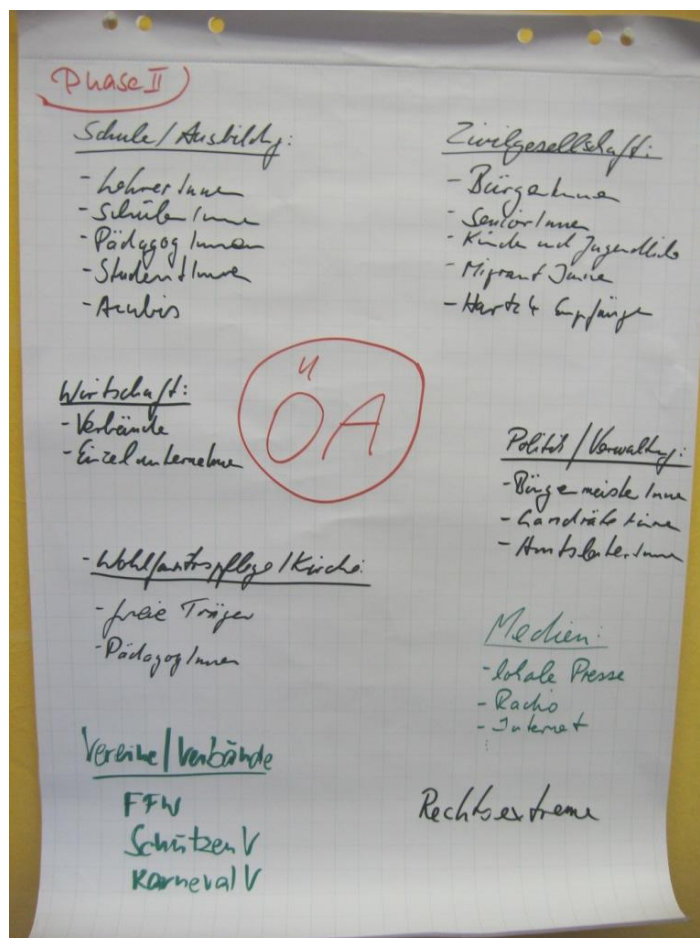 Phase II
Schule/Ausbildung:
- LehrerInnen
- SchülerInnen
- PädagogInnen
- StudentInnen
- Azubis
Zivilgesellschaft:
- BürgerInnen
- SeniorInnen
- Kinder und Jugendliche
- MigrantInnen
- Hartz 4 Empfänger
ÖA
Wirtschaft:
- Verbände
- Einzelunternehmen
Politik/Verwaltung:
- BürgermeisterInnen
- LandräteInnen
- AmtsleiterInnen
- Wohlfahrtspflege/Kirche:
- freie Träger
- PädagogInnen
Medien:
- lokale Presse
- Radio
- Internet
Vereine/Verbände
FFW
Schützen V
Karneval V
Rechtsextreme